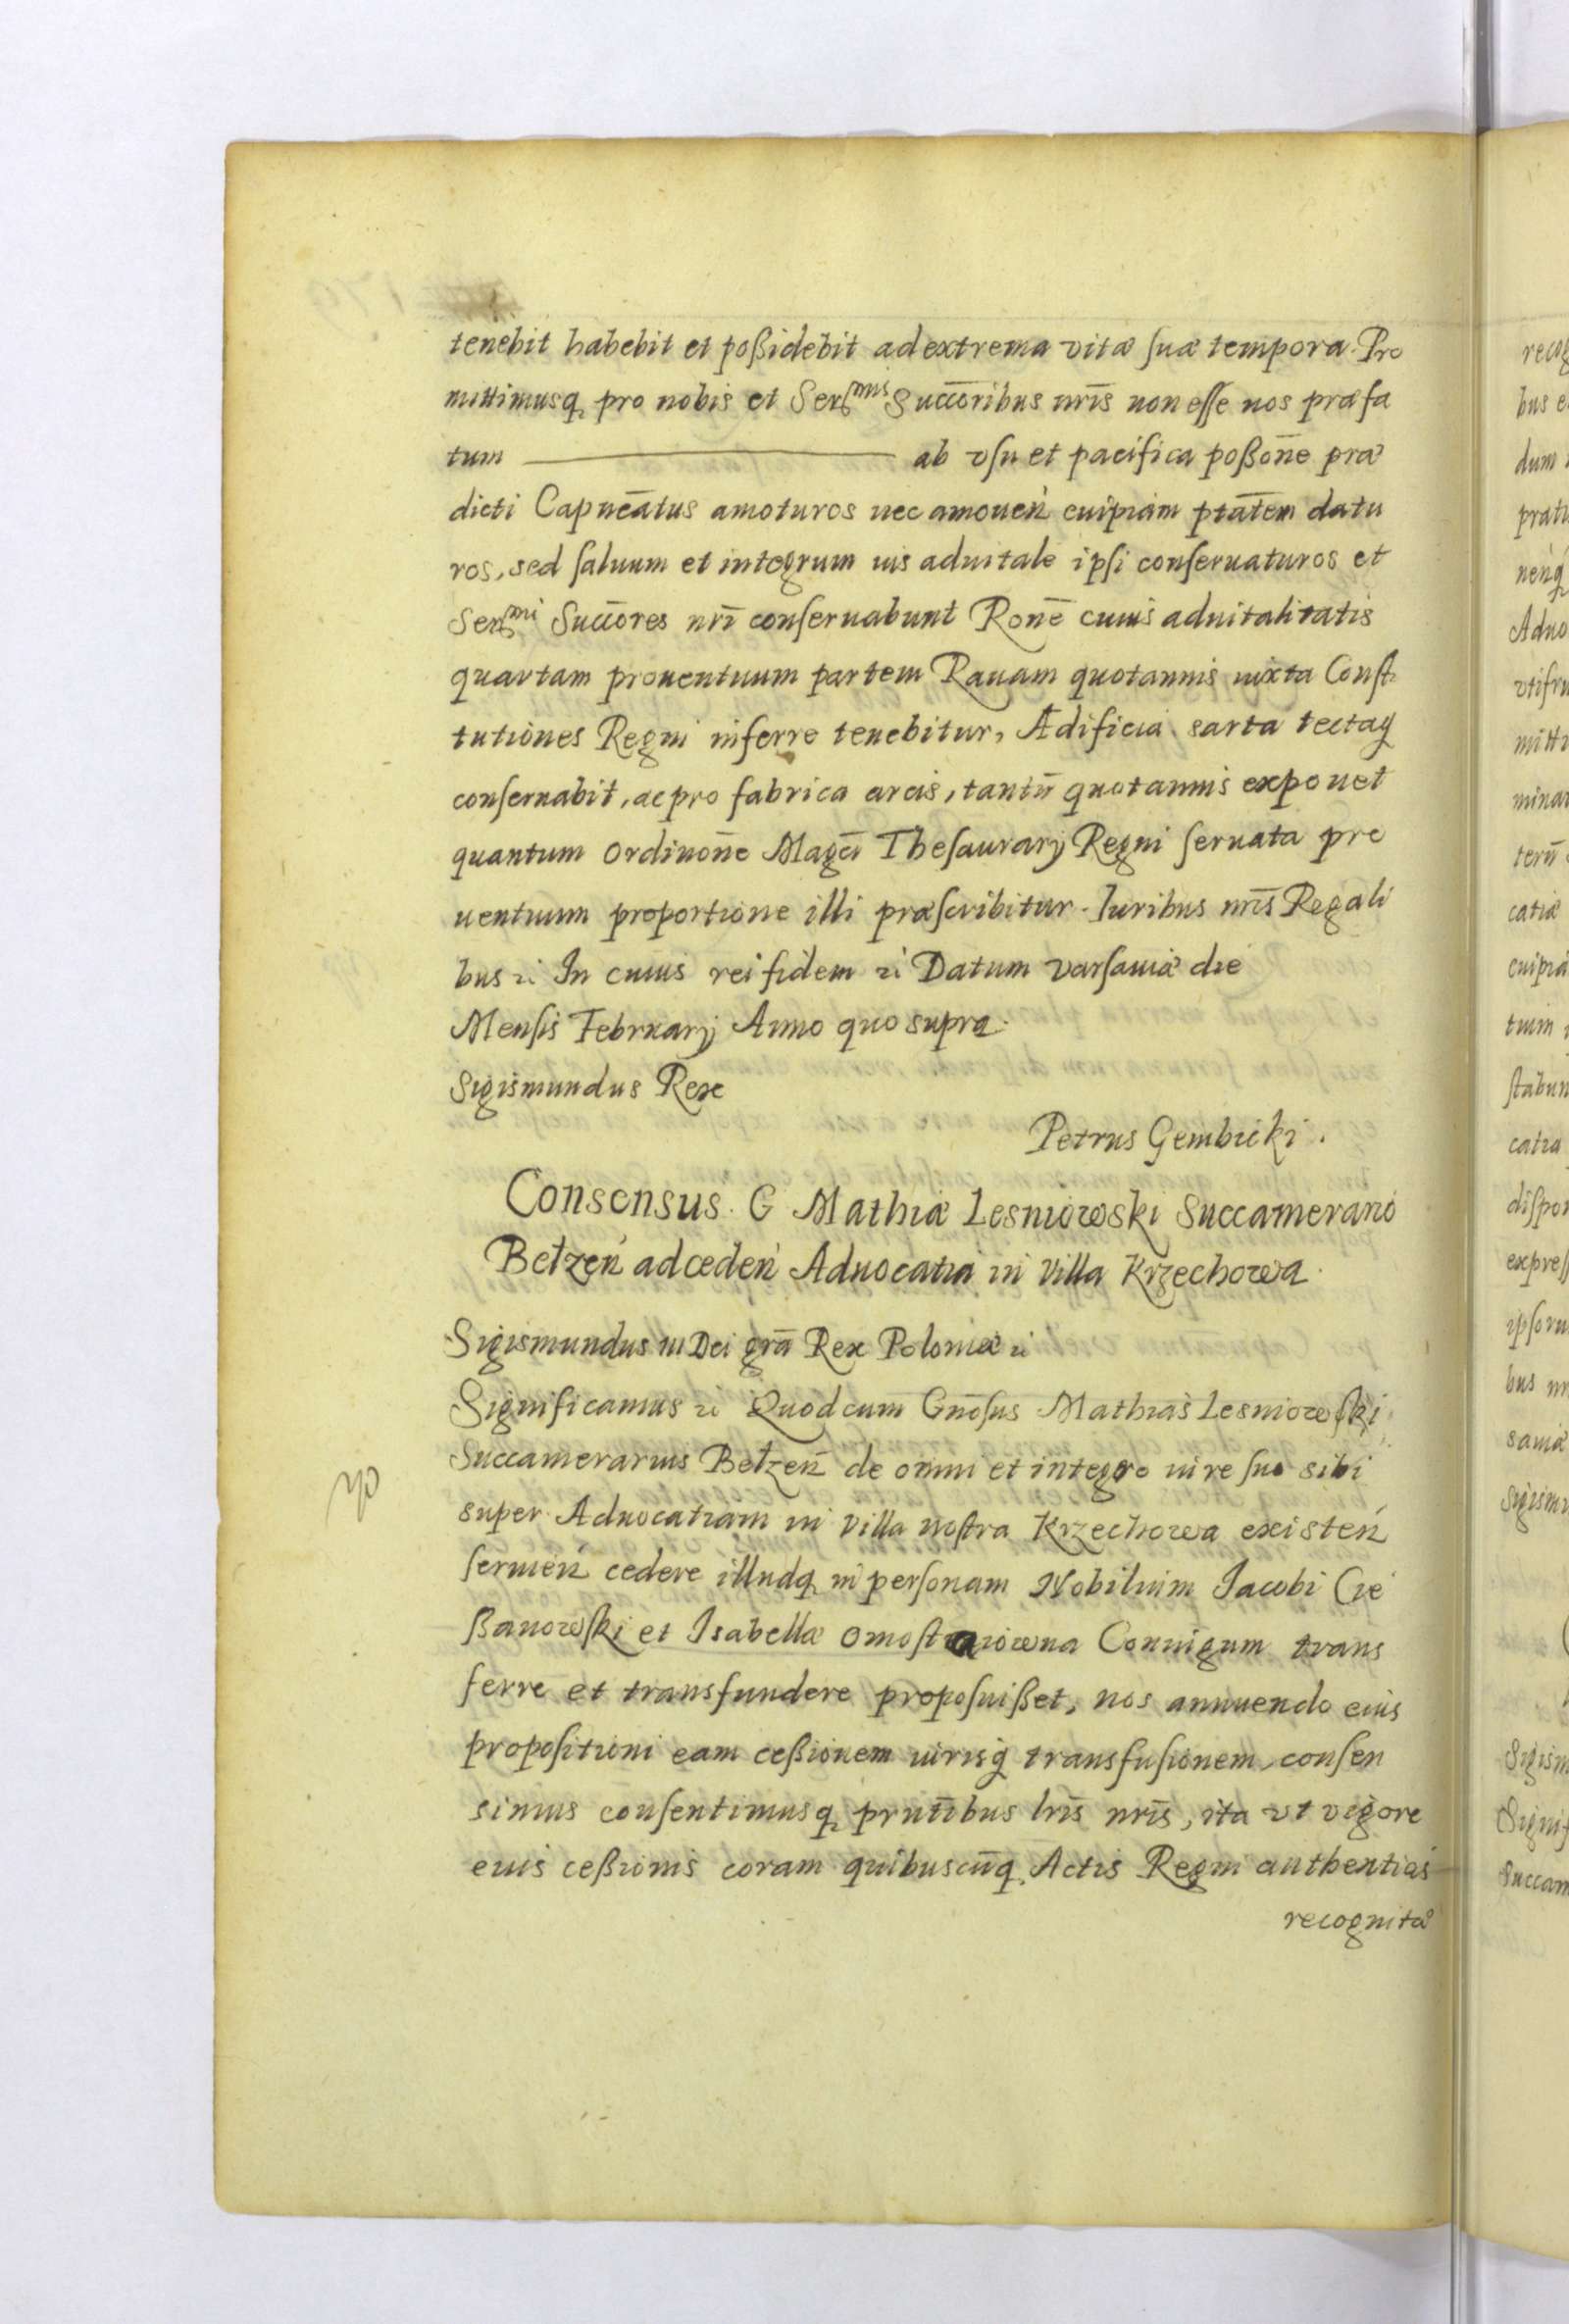 tenebit habebit et poßidebit ad extrema vitæ suæ tempora. Pro
mittimusq̃ pro nobis et Ser͂mis Succ̄oribus nr̄is non esse nos præfa
tum ———— ab vsu et pacifica poßōne præ
dicti Capnēatus amoturos nec amouen̄ cuipiam ptātem datu
ros, sed saluum et integrum ius aduitale ipsi conseruaturos et
Ser͂mi Succ̄ores nr̄i conseruabunt Ronē cuius aduitalitatis
quartam prouentuum partem Rauam quotannis iuxta Consti
tutiones Regni inferre tenebitur, Ædificia sarta tectaq̃
conseruabit, ac pro fabrica arcis, tantū quotannis exponet
quantum ordinōne Magci Thesaurarij Regni seruata pro
uentuum proportione illi præscribitur. Iuribus nr̄is Regali
bus ꝛc̃ In cuius rei fidem ꝛc̃ Datum Varsauiæ die
Mensis Februarij Anno quo supra.
Sigismundus Rex
Petrus Gembicki.
Consensus. G Mathiæ Lesniowski Succamerario
Betzen̄ ad ceden̄ Aduocatia in Villa Krzechowa.
Sigismundus III Dei grā Rex Poloniæ ꝛc̃
Significamus ꝛc̃ Quod cum Gn̄osus Mathias Lesniowski
Succamerarius Betzen̄ de omni et integro iure suo sibi
super Aduocatiam in Villa nostra Krzechowa existen̄
seruien̄ cedere illudq̃ in personam Nobilium Jacobi Cie
ßanowski et Isabellæ Omostowna Coniugum trans
ferre et transfundere proposuißet, nos annuendo eius
propositioni eam ceßionem iurisq̃ transfusionem consen
simus consentimusq̃ prn̄tibus lr̄is nr̄is, ita vt vigore
eius ceßionis coram quibuscūq̃ Actis Regni authenticis
recognitæ